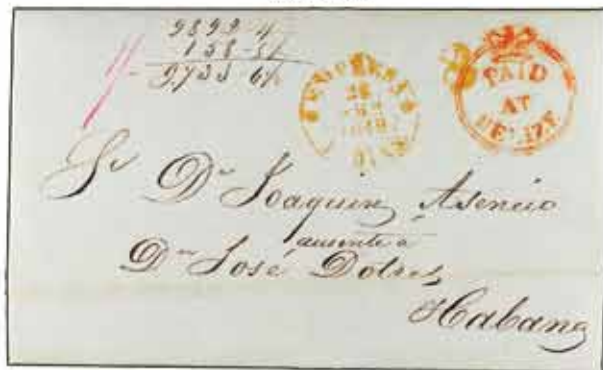 1/-
9899 4
158-5½
9733 6½
PAID
AT
BELIZE
Sr Dn Joaquin Asencio
ausente a
Dn José Dotres
Habana